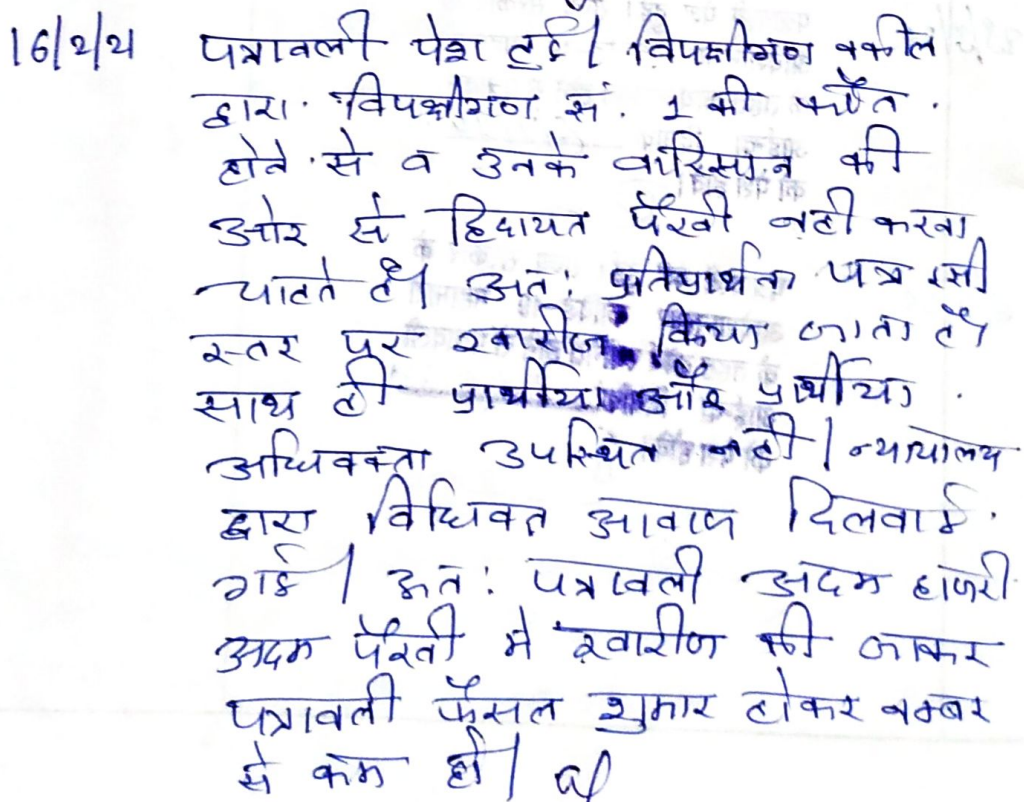 16/2/21 पत्रावली पेश हुई। विपक्षीगण वकील
द्वारा विपक्षीगण सं. 1 की फौत
होने से व उनके वारिसान की
ओर से हिदायत पैरवी नही करना
चाहते है। अत: प्रतिप्रार्थना पत्र इसी
स्तर पर खारीज किया जाता है।
साथ ही प्रार्थीया और प्रार्थीया
अधिवक्ता उपस्थित नही। न्यायालय
द्वारा विधिवत आवाज दिलवाई
गई। अत: पत्रावली अदम हाजरी
अदम पैरवी मे खारीज की जाकर
पत्रावली फैसल शुमार होकर नम्बर
से कम हो।